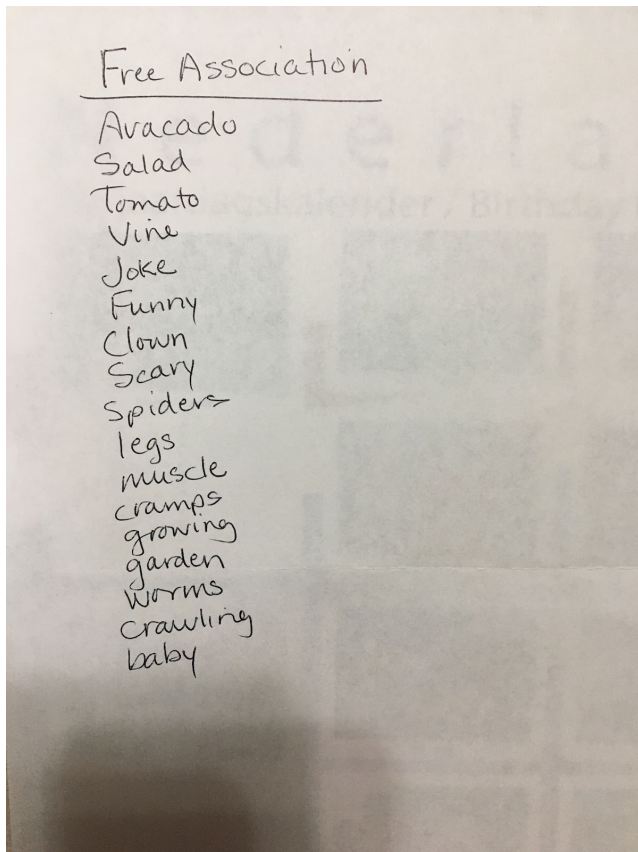 Free Association
Avacado
Salad
Tomato
Vine
Joke
Funny
Clown
Scary
Spiders
legs
muscle
cramps
growing
garden
worms
crawling
baby
ederla
kalender / Birthday